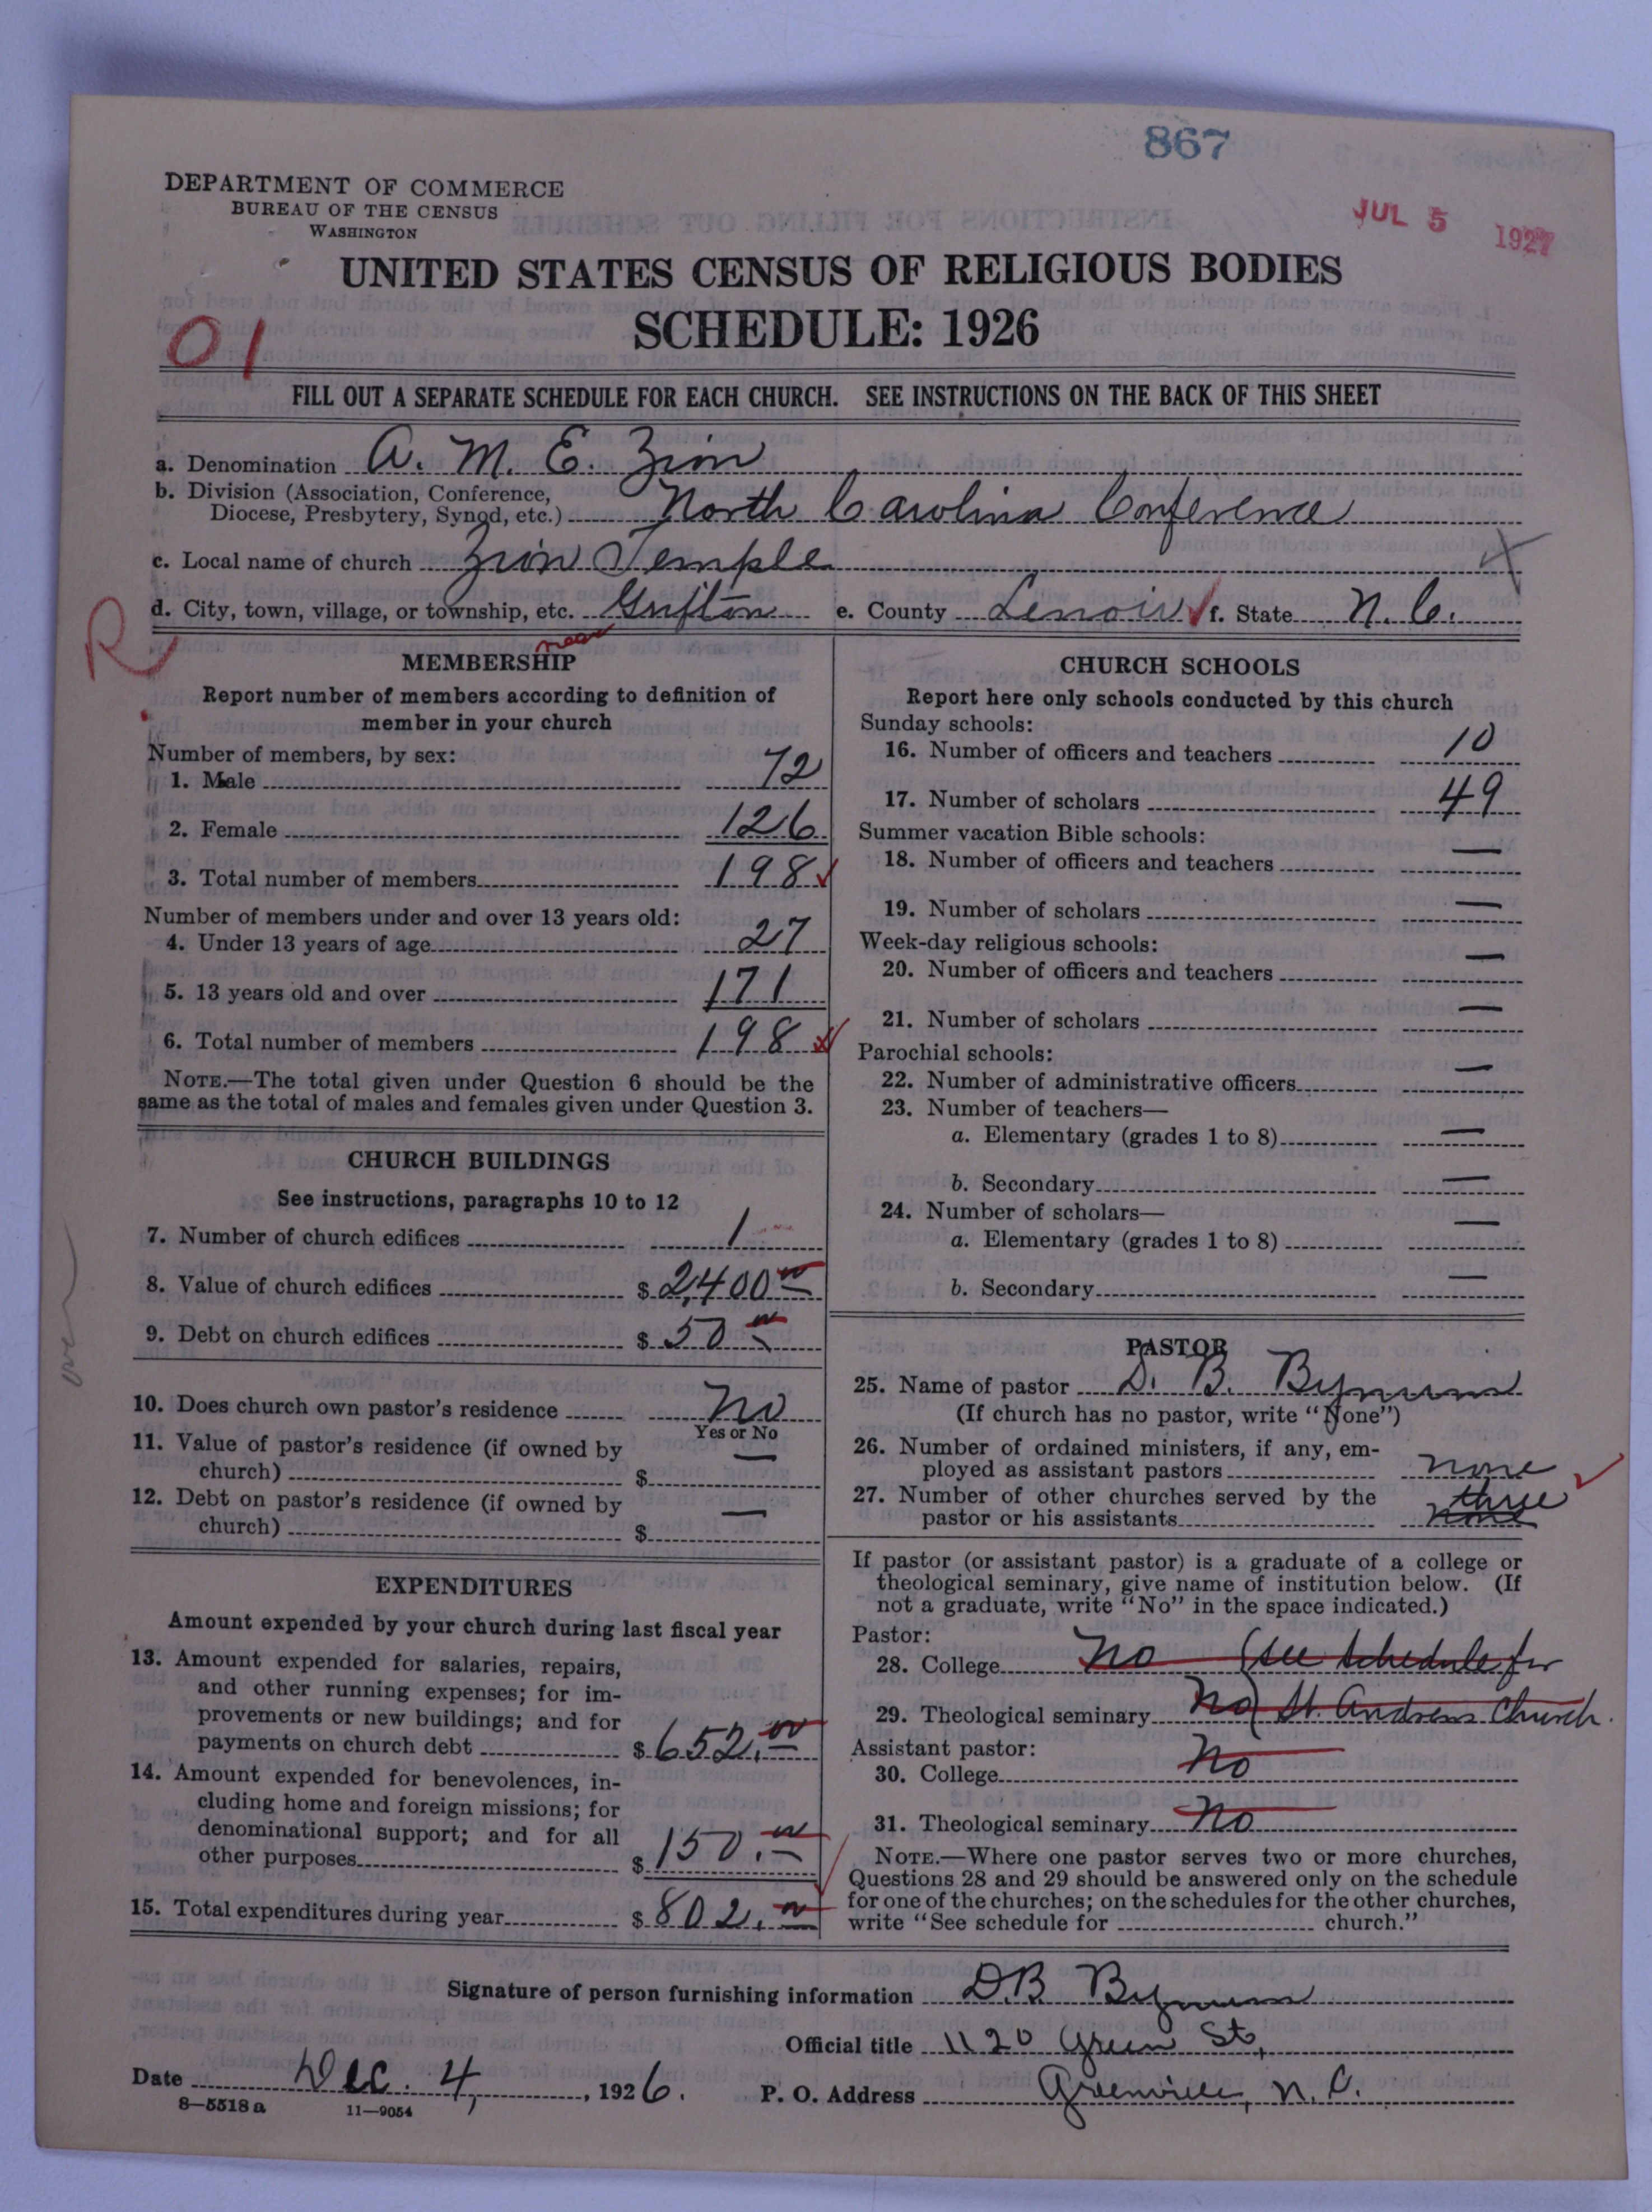 867
DEPARTMENT OF COMMERCE
BUREAU OF THE CENSUS
WASHINGTON
JUL 5 1927
UNITED STATES CENSUS OF RELIGIOUS BODIES
SCHEDULE: 1926
01
FILL OUT A SEPARATE SCHEDULE FOR EACH CHURCH. SEE INSTRUCTIONS ON THE BACK OF THIS SHEET
a. Denomination A. M. E. Zion
b. Division (Association, Conference,
Diocese, Presbytery, Synod, etc.) North Carolina Conference
c. Local name of church Zion Temple
d. City, town, village, or township, etc. Grifton e. County Lenoir f. State N. C.
R
near
MEMBERSHIP
Report number of members according to definition of
member in your church
Number of members, by sex:
1. Male 72
2. Female 126
3. Total number of members 198
Number of members under and over 13 years old:
4. Under 13 years of age 27
5. 13 years old and over 171
6. Total number of members 198
NOTE.—The total given under Question 6 should be the
same as the total of males and females given under Question 3.
CHURCH BUILDINGS
See instructions, paragraphs 10 to 12
7. Number of church edifices 1
8. Value of church edifices $ 2,400 00
9. Debt on church edifices $ 50 00
10. Does church own pastor's residence No
Yes or No
11. Value of pastor's residence (if owned by
church) $ —
12. Debt on pastor's residence (if owned by
church) $ —
over
EXPENDITURES
Amount expended by your church during last fiscal year
13. Amount expended for salaries, repairs,
and other running expenses; for im-
provements or new buildings; and for
payments on church debt $ 652.00
14. Amount expended for benevolences, in-
cluding home and foreign missions; for
denominational support; and for all
other purposes $ 150.00
15. Total expenditures during year $ 802.00
CHURCH SCHOOLS
Report here only schools conducted by this church
Sunday schools:
16. Number of officers and teachers 10
17. Number of scholars 49
Summer vacation Bible schools:
18. Number of officers and teachers —
19. Number of scholars —
Week-day religious schools:
20. Number of officers and teachers —
21. Number of scholars —
Parochial schools:
22. Number of administrative officers —
23. Number of teachers—
a. Elementary (grades 1 to 8) —
b. Secondary —
24. Number of scholars—
a. Elementary (grades 1 to 8) —
b. Secondary —
PASTOR
25. Name of pastor D. B. Bynum
(If church has no pastor, write "None")
26. Number of ordained ministers, if any, em-
ployed as assistant pastors none
27. Number of other churches served by the three
pastor or his assistants none
If pastor (or assistant pastor) is a graduate of a college or
theological seminary, give name of institution below. (If
not a graduate, write "No" in the space indicated.)
Pastor:
28. College No (see schedule for
29. Theological seminary No) St. Andrews Church.
Assistant pastor:
30. College No
31. Theological seminary No
NOTE.—Where one pastor serves two or more churches,
Questions 28 and 29 should be answered only on the schedule
for one of the churches; on the schedules for the other churches,
write "See schedule for church."
Signature of person furnishing information D.B. Bynum
Official title 1120 Green St,
Date Dec. 4, 1926. P. O. Address Greenville, N. C.
8—5518 a 11—9054